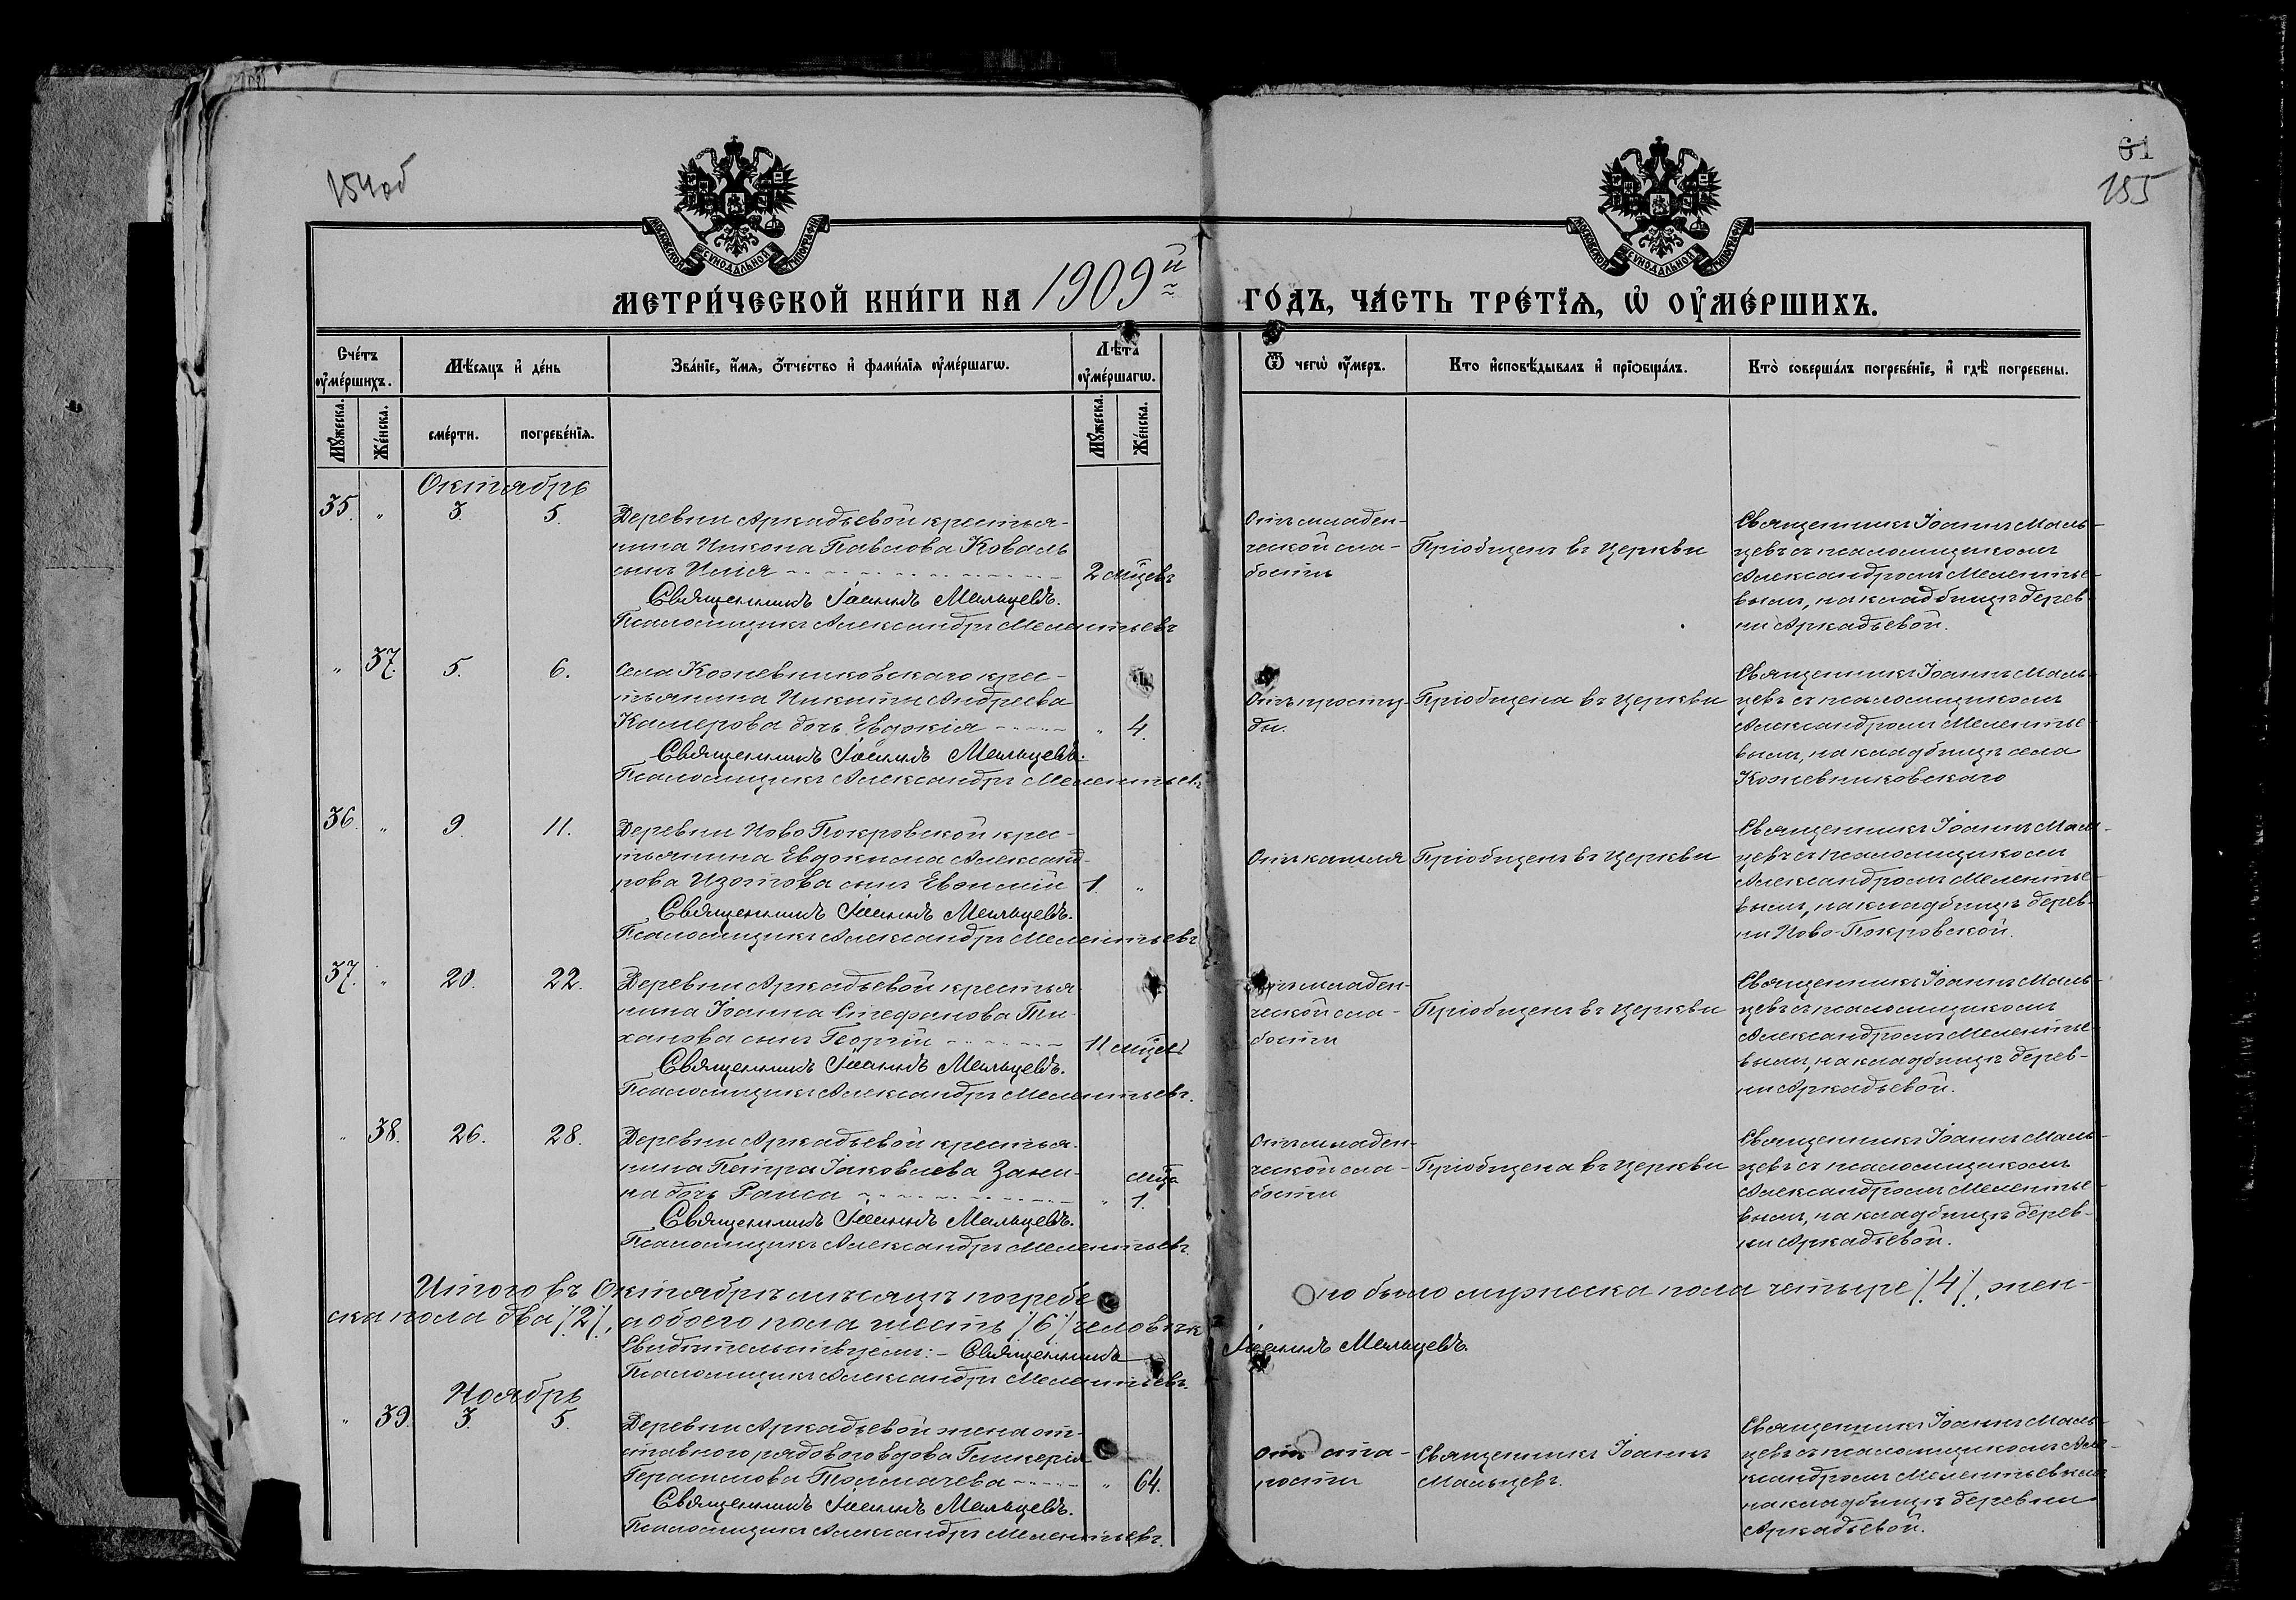 154об
61
155
МОСКОВСКОЙ СѴНОДАЛЬНОЙ ТИПОГРАФІИ
МОСКОВСКОЙ СѴНОДАЛЬНОЙ ТИПОГРАФІИ
МЕТРИ́ЧЕСКОЙ КНИ́ГИ НА 1909й ГО́ДЪ, ЧА́СТЬ ТРЕ́ТЇѦ, Ѡ҆ ОУ҆МЕ́РШИХЪ.
Сче́тъ оу҆ме́ршихъ.
Мѣ́сѧцъ и҆ де́нь
Зва́нїе, и҆́мѧ, ѻ҆́тчество и҆ фами́лїѧ оу҆ме́ршагѡ.
Лѣ́та оу҆ме́ршагѡ.
Ѿ чегѡ̀ оу҆́меръ.
Кто̀ и҆сповѣ́дывалъ и҆ прїѡбща́лъ.
Кто̀ соверша́лъ погребе́нїе, и҆ гдѣ̀ погребены.
Мꙋ́жеска.
Же́нска.
сме́рти.
погребе́нїѧ.
Мꙋ́жеска.
Же́нска.
Октябрь
35. „ 3. 5.
Деревни Аркадьевой крестья-
нина Никона Павлова Коваль
сынъ Илія 2 мѣцевъ
Священникъ Іоаннъ Мальцевъ.
Псаломщикъ Александръ Мелентьевъ
Отъ младен-
ческой сла-
бости
Пріобщенъ въ церкви
Священникъ Іоаннъ Маль-
цевъ съ псаломщикомъ
Александромъ Мелентье-
вымъ, на кладбищѣ дерев-
ни Аркадьевой.
„ 37. 5. 6.
Села Кожевниковскаго крес-
тьянина Никиты Андреева
Камерова дочь Евдокія „ 4.
Священникъ Іоаннъ Мальцевъ.
Псаломщикъ Александръ Мелентьевъ
Отъ просту-
ды.
Пріобщена въ церкви
Священникъ Іоаннъ Маль-
цевъ съ псаломщикомъ
Александромъ Мелентье-
вымъ, на кладбищѣ села
Кожевниковскаго
36. „ 9. 11.
Деревни Ново Покровской крес-
тьянина Евдокима Александ-
рова Изотова сынъ Евфимій 1. „
Священникъ Іоаннъ Мальцевъ.
Псаломщикъ Александръ Мелентьевъ
Отъ кашля
Пріобщенъ въ церкви
Священникъ Іоаннъ Маль-
цевъ съ псаломщикомъ
Александромъ Мелентье-
вымъ, на кладбищѣ дерев-
ни Ново-Покровской.
37. „ 20. 22.
Деревни Аркадьевой крестья-
нина Іоанна Стефанова Ти-
ханова сынъ Георгій 11 мѣцевъ
Священникъ Іоаннъ Мальцевъ.
Псаломщикъ Александръ Мелентьевъ.
Отъ младен-
ческой сла-
бости
Пріобщенъ въ церкви
Священникъ Іоаннъ Маль-
цевъ съ псаломщикомъ
Александромъ Мелентье-
вымъ, на кладбищѣ дерев-
ни Аркадьевой.
„ 38. 26. 28.
Деревни Аркадьевой крестья-
нина Петра Іаковлева Зани-
на дочь Раиса „ мѣца 1.
Священникъ Іоаннъ Мальцевъ.
Псаломщикъ Александръ Мелентьевъ.
Отъ младен-
ческой сла-
бости
Пріобщена въ церкви
Священникъ Іоаннъ Маль-
цевъ съ псаломщикомъ
Александромъ Мелентье-
вымъ, на кладбищѣ дерев-
ни Аркадьевой.
Итого въ Октябрѣ мѣсяцѣ погребе но было мужеска пола четыре /4/, жен-
ска пола два /2/, а обоего пола шесть /6/ человѣкъ
Свидѣтельствуемъ: - Священникъ Іоаннъ Мальцевъ.
Псаломщикъ Александръ Мелентьевъ.
Ноябрь
„ 39. 3. 5.
Деревни Аркадьевой жена от-
ставного рядового вдова Гликерія
Герасимова Толмачева „ 64.
Священникъ Іоаннъ Мальцевъ.
Псаломщикъ Александръ Мелентьевъ.
Отъ ста-
рости
Священникъ Іоаннъ
Мальцевъ.
Священникъ Іоаннъ Маль-
цевъ съ псаломщикомъ Але-
ксандромъ Мелентьевымъ
на кладбищѣ деревни
Аркадьевой.